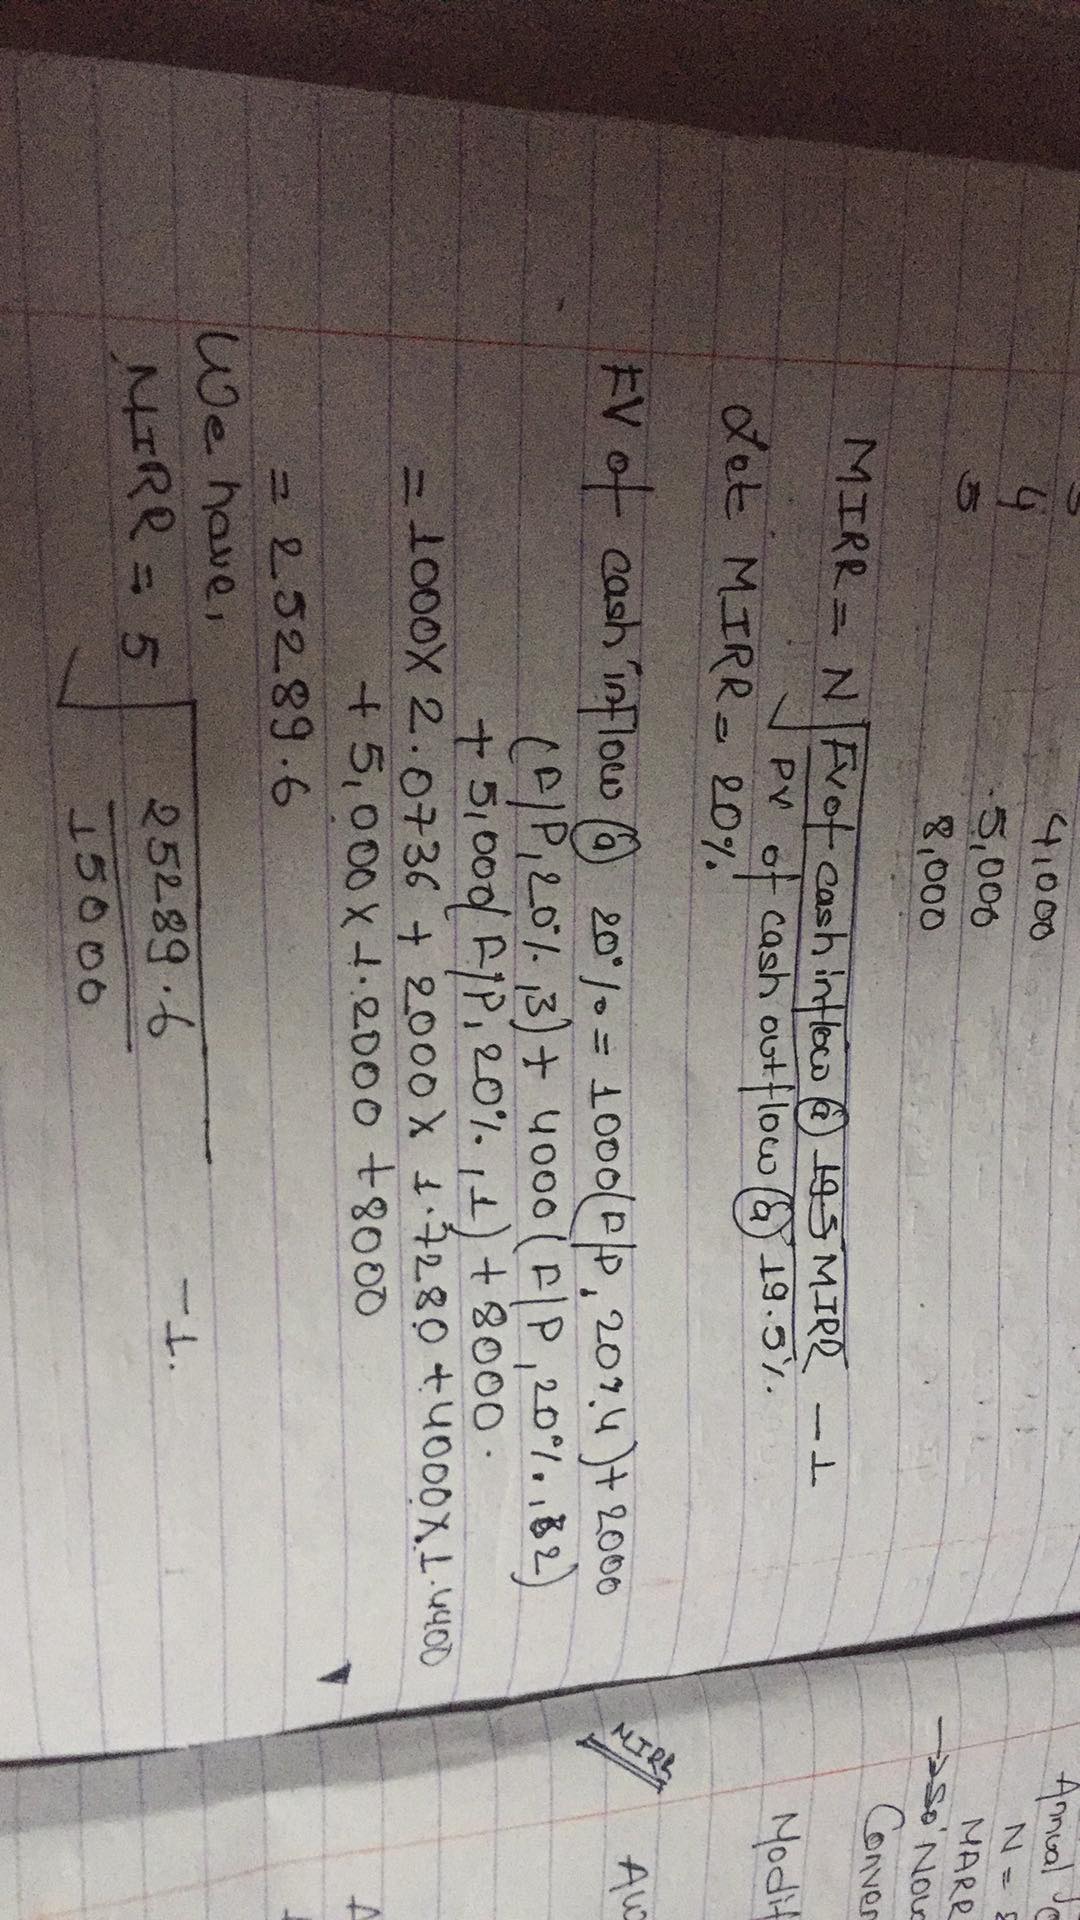 4 4,000
5 5,000
8,000
MIRR = N√ FV of cash inflow @ 19.5 MIRR - 1
PV of cash outflow @ 19.5%.
Let MIRR = 20%
FV of cash inflow @ 20% = 1000(F/P, 20%.4) + 2000
(F/P, 20%.,3) + 4000 (F/P, 20%., 2)
+ 5,000(F/P, 20%., 1) + 8000.
= 1000X 2.0736 + 2000X 1.7280 + 4000X 1.4400
+ 5,000 X 1.2000 + 8000
= 25289.6
We have,
MIRR = 5√ 25289.6 - 1.
15000
Annual
N =
MARR
→ So Now
Conver
Modif
MIRR
AW